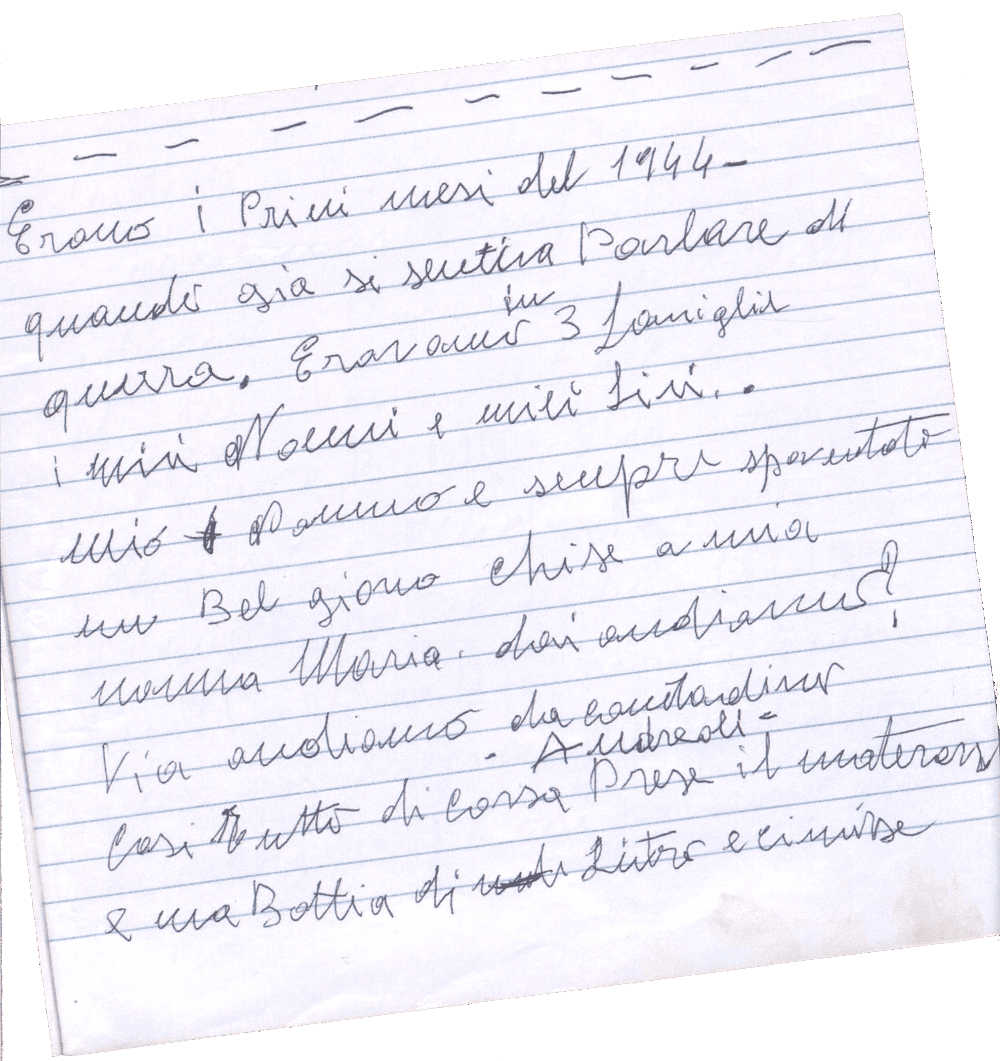 Erano i Primi mesi del 1944-
quando già si sentiva Parlare di
guerra. Eravamo in 3 famiglie
i miei Nonni e miei Zii..
mio Nonno e sempre spaventato
un Bel giorno chise a mia
nonna Maria. dai andiamo?
Via andiamo da contadino
- Andreoli -
Cosi tutto di corsa Prese il materass
e una Bottia di Litro e ci mise